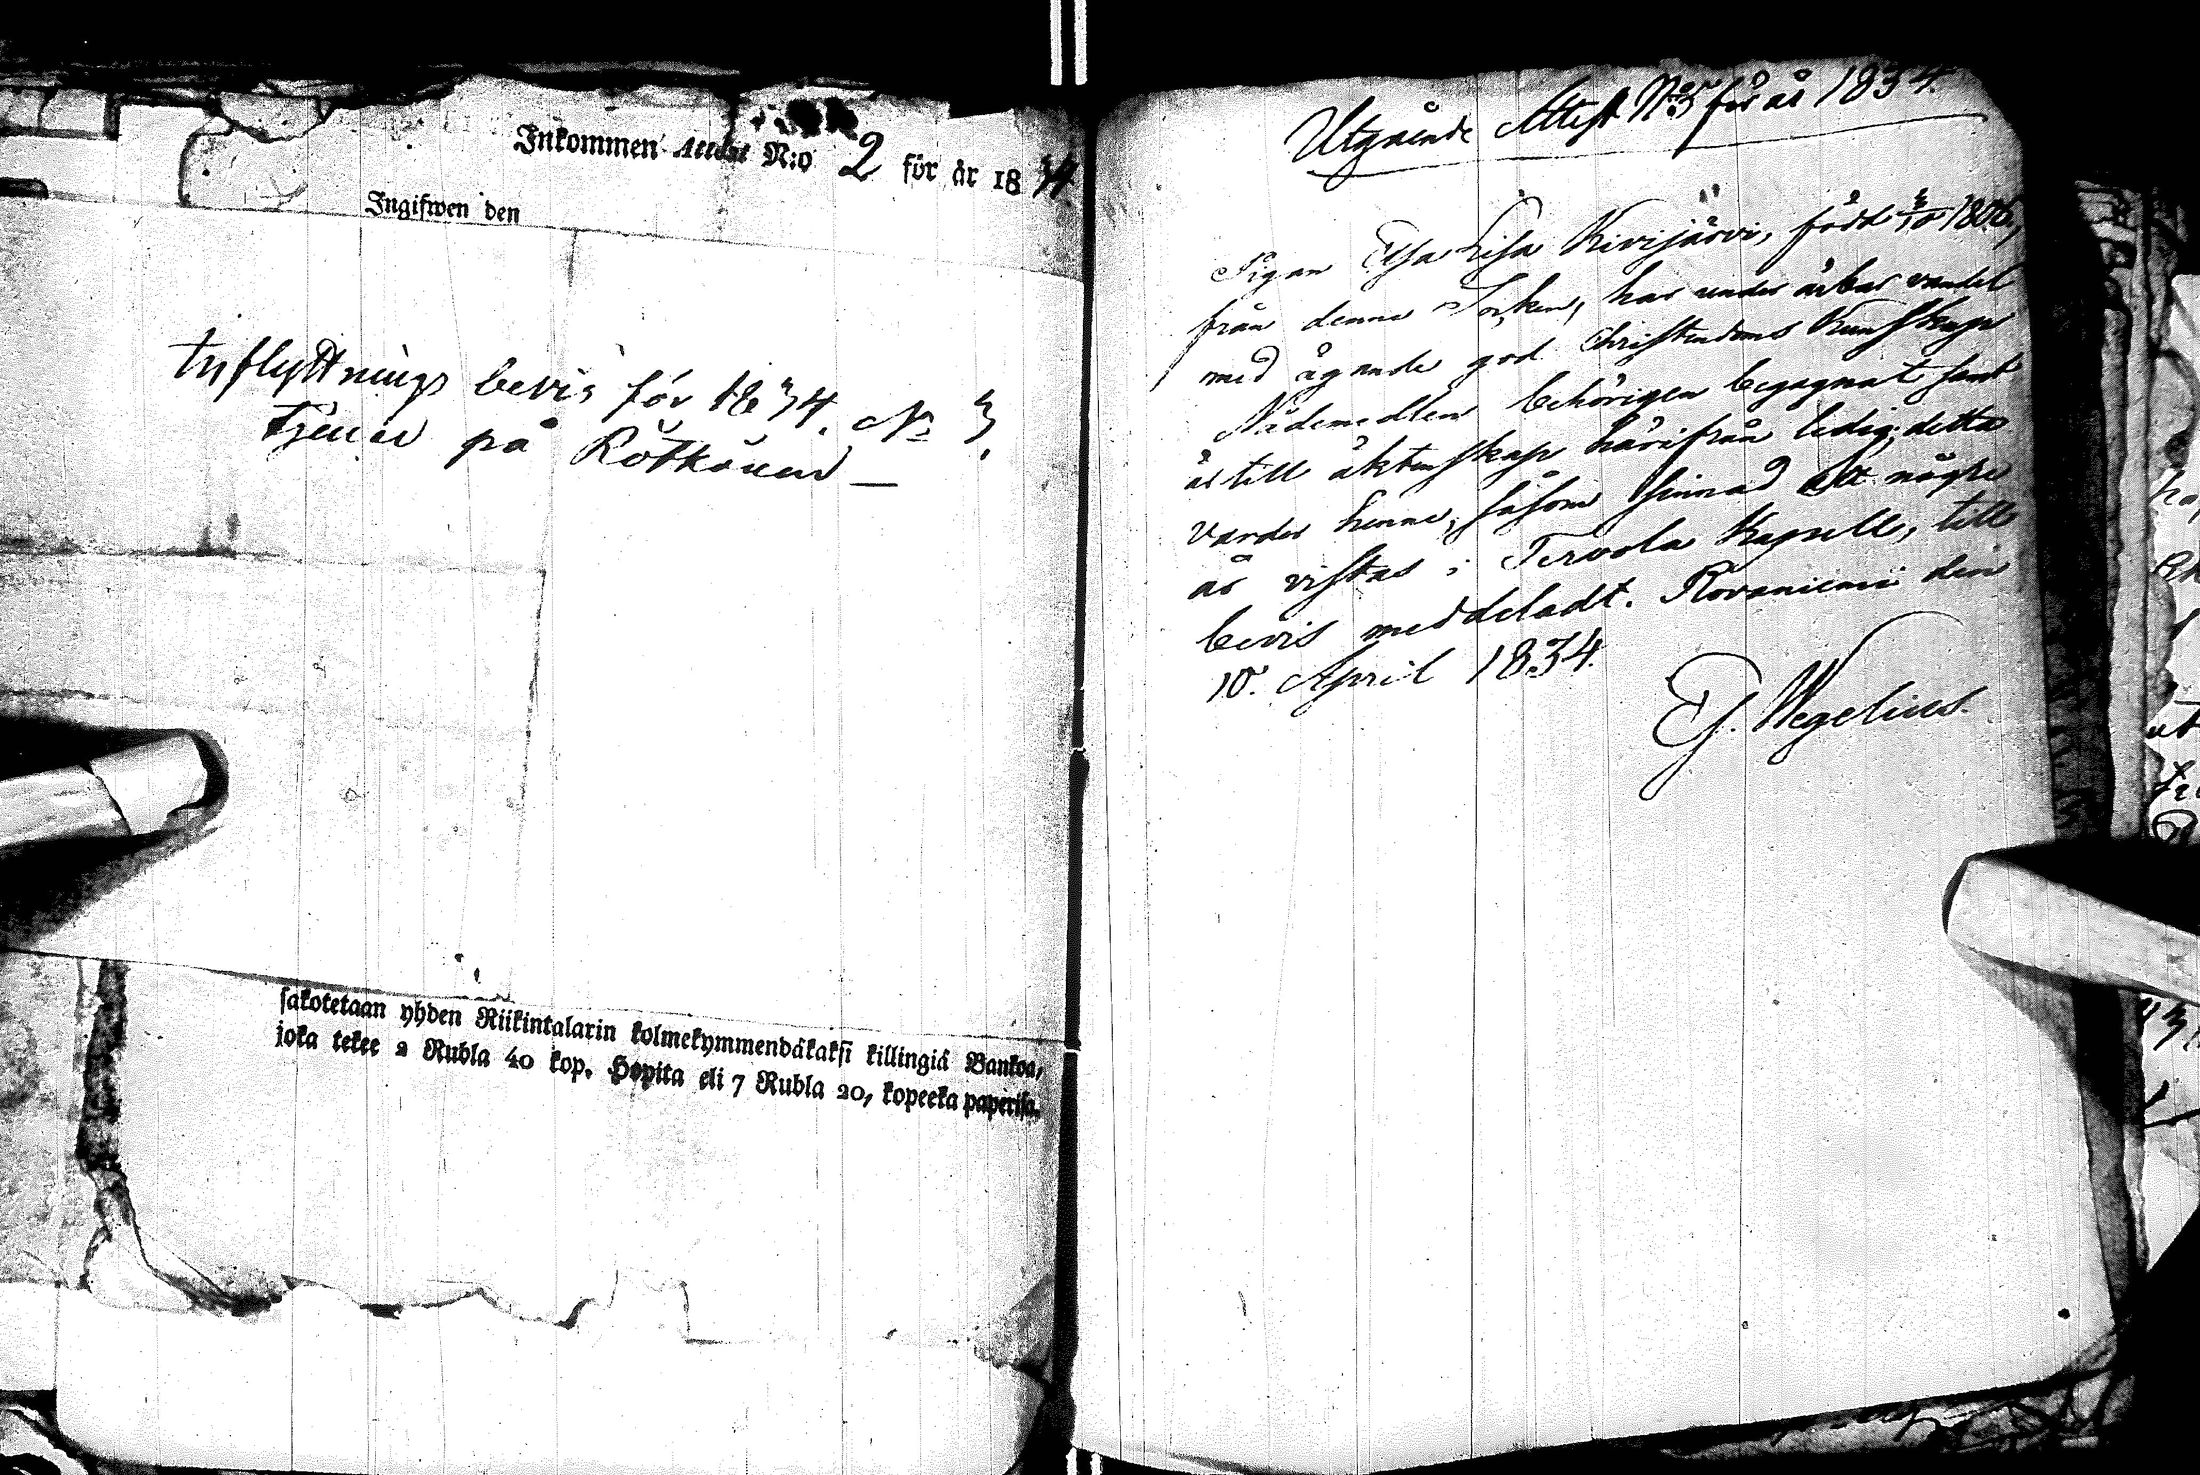 Inkommen Attest N:o 2 för år 1834
Ingifwen den
Inflyttnings bevis för 1834. No 3.
Tjenar på Rötkönen —
sakotetaan yhden Riikintalarin kolmekymmendäkaksi killingiä Bankoa,
joka tekee 2 Rubla 40 kop. Hopita eli 7 Rubla 20, kopeeka paperisa.
Utgående Attest No 5 för år 1834.
Pigan Elsa Lisa Kivijärvi, född 1806,
från denna Socken, har under ärbar vandel
med ägande god Christendoms Kunskap
Nådemedlen behörigen begagnat samt
är till äktenskap härifrån ledig; detta
varder henne, såsom sinnad att någre
år vistas i Tervola Kapell, till
bevis meddeladt. Rovaniemi den
10. April 1834.
EJ. Wegelius.